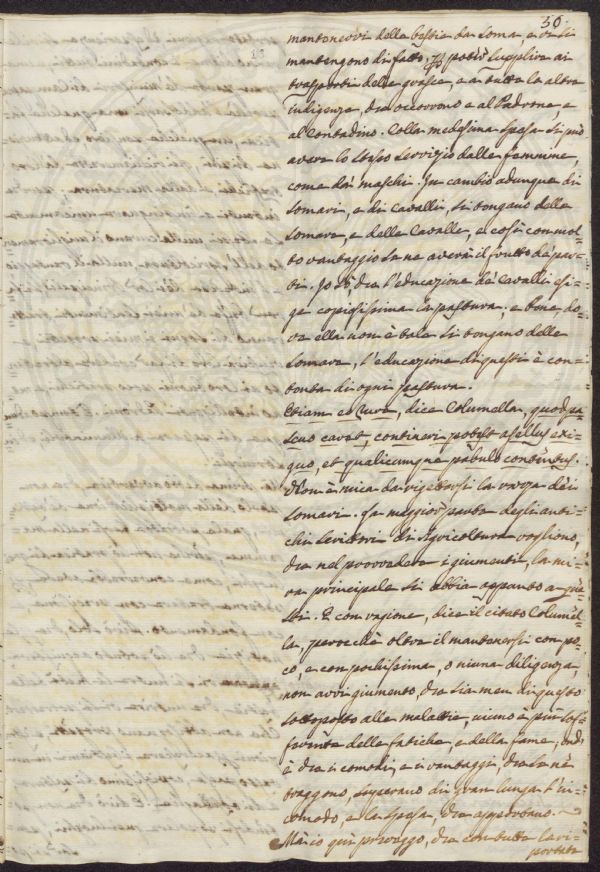 30.
mantenervi delle bestie da soma e vi si
mantengono di fatto, potrà supplire ai
trasporti delle grasce, e a tutte le altre
indigenze, che occorrono e al Padrone, e
al Contadino. Colla medesima spesa si può
avere lo stesso servizio dalle femmine,
come da' maschi. In cambio adunque di
somari, e di Cavalli, si tengano delle
somare, e delle Cavalle, e così con mol=
to vantaggio se ne averà il frutto de' par=
ti. Io sò, che l'educazione de' Cavalli esi=
ge copiosissima la pastura; e bene do=
ve ella non è tale si tengano delle
somare, l'educazione di questi è con=
tenta di ogni pastura.
Etiam eo rure, dice Columella, quod pa=
scuo caret, contineri potest asellus exi=
guo, et qualicumque pabulo contentus.
Non è mica da rigettarsi la razza dei
somari. La maggior parte degli anti=
chi scrittori di Agricoltura vogliono,
che nel provvedere i giumenti, la mi=
ra principale si abbia appunto a que=
sti. E con ragione, dice il citato Columel=
la, perocchè oltre il mantenersi con po=
co, e con pochissima, o niuna diligenza,
non avvi giumento, che sia men di questo
sottoposto alle malattie, niuno è più sof=
ferente delle fatiche, e della fame, ond'
è che i comodi, e i vantaggi, che se ne
traggono, superano di gran lunga l'in=
comodo, e la spesa, che apportano.
Mà io quì preveggo, che con tutte le ri=
portate